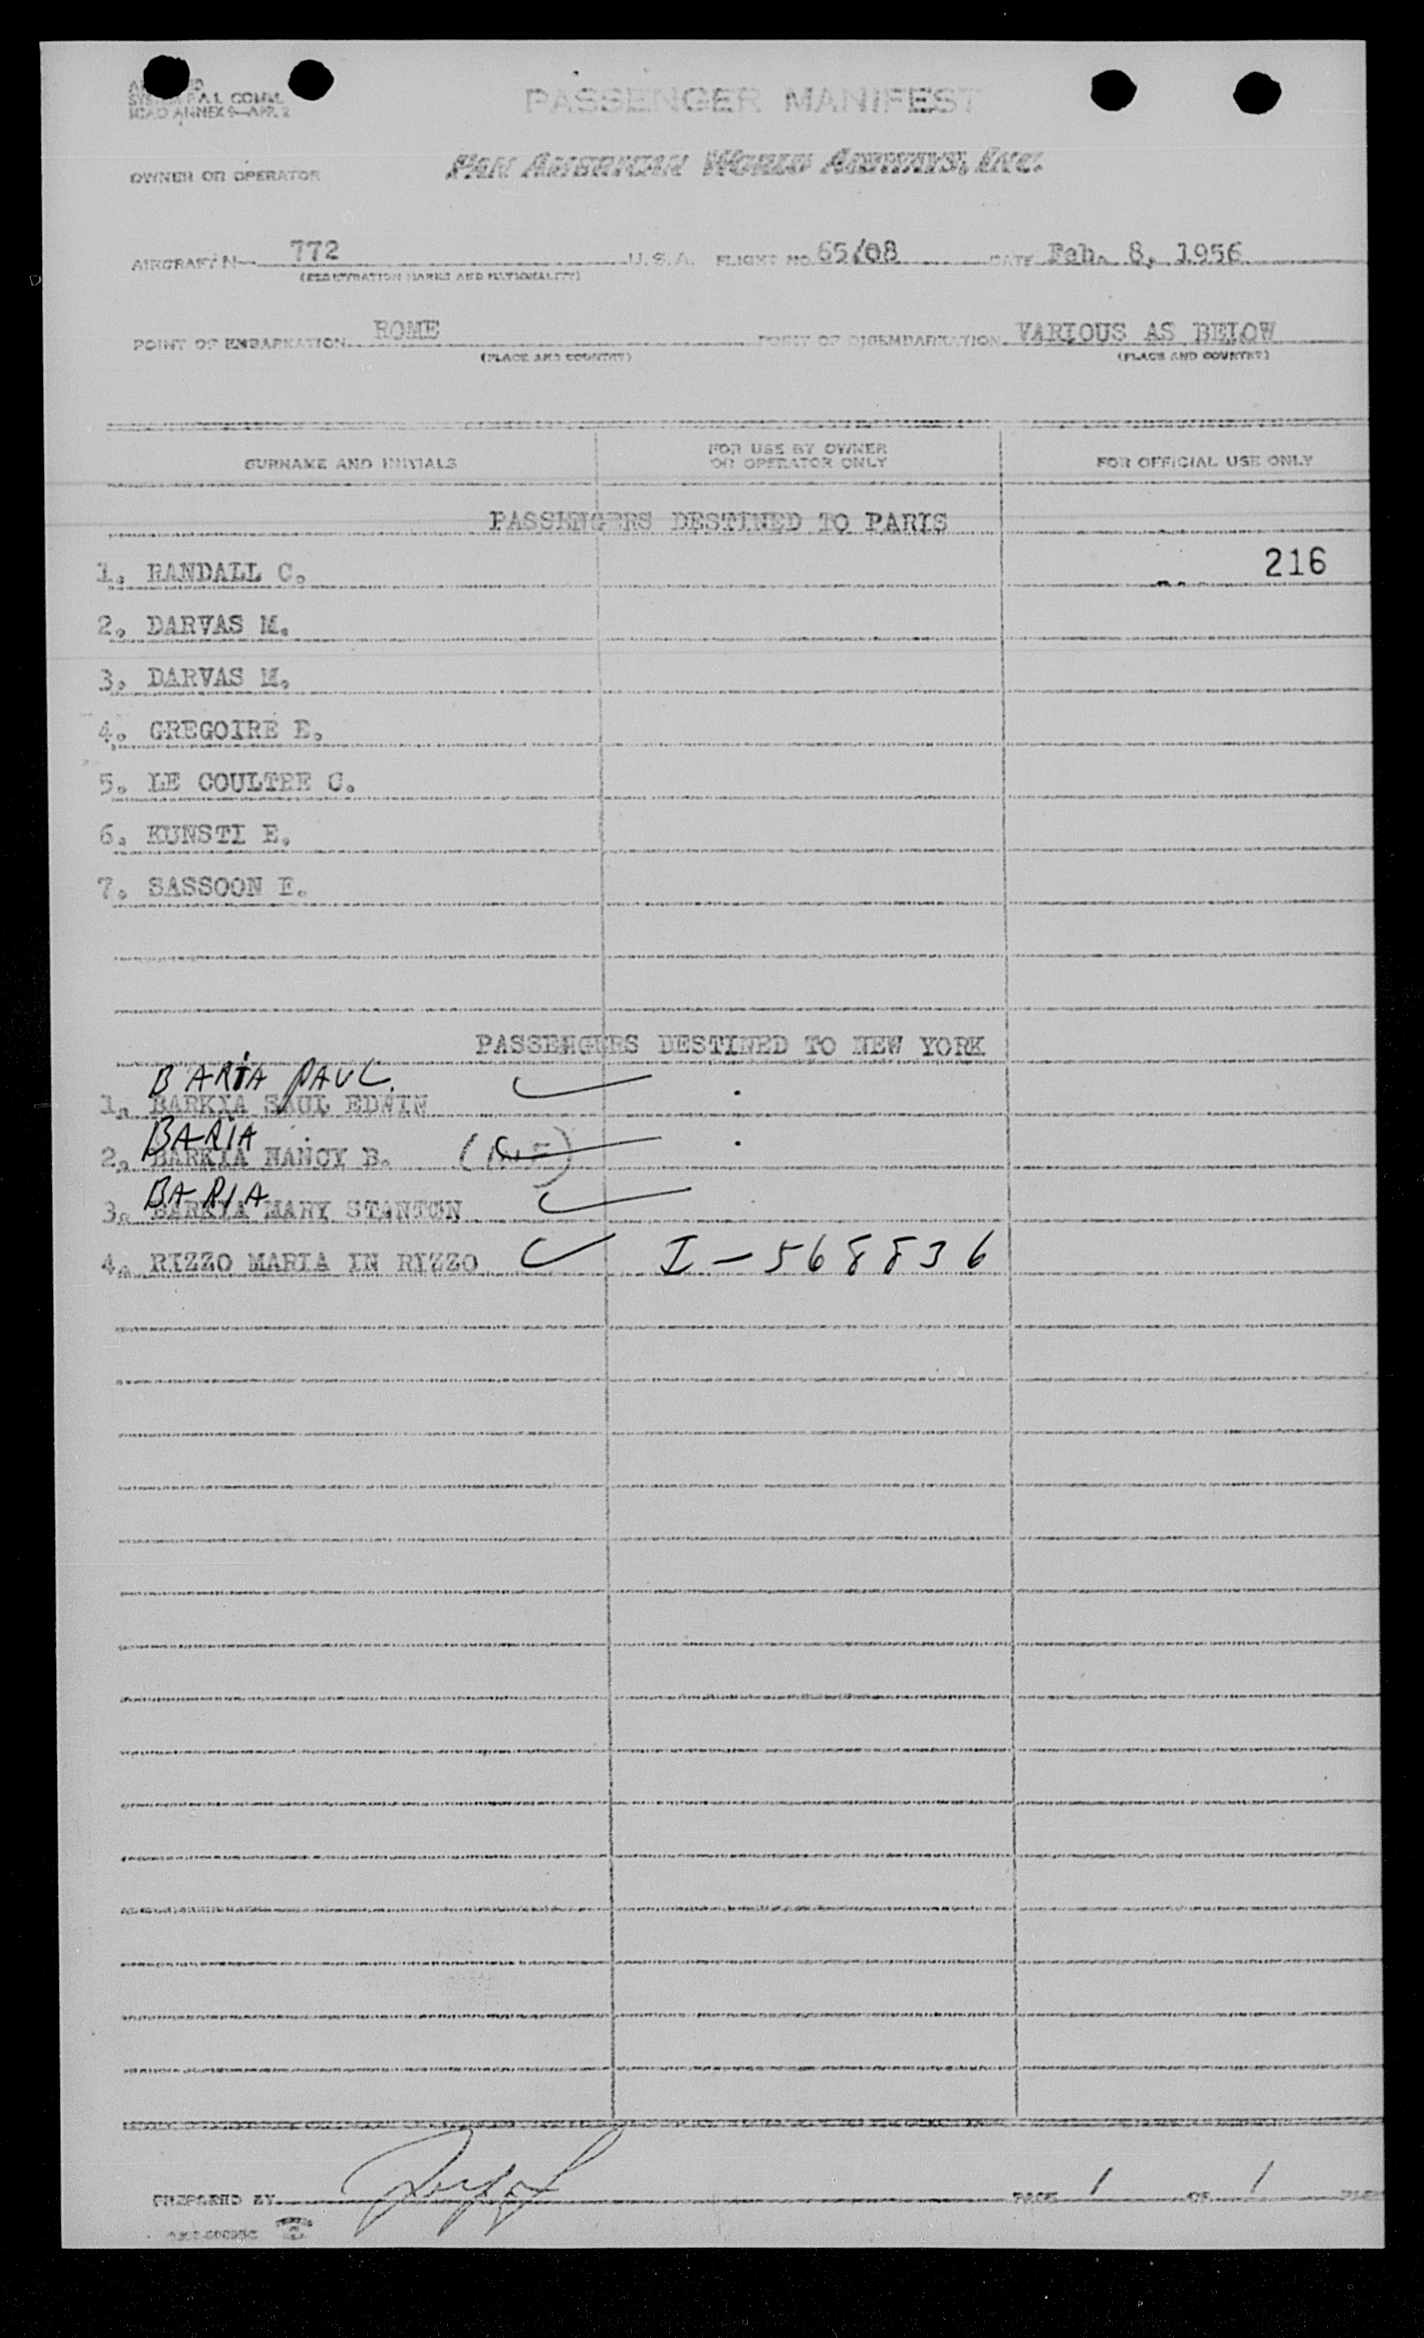 SYSTEM P.A.I. COMM.
ICAO ANNEX 9—APP. 2
PASSENGER MANIFEST
OWNER OR OPERATOR PAN AMERICAN WORLD AIRWAYS, INC.
AIRCRAFT N— 772 U.S.A. FLIGHT NO. 65/08 DATE Feb. 8, 1956
(REGISTRATION MARKS AND NATIONALITY)
POINT OF EMBARKATION ROME POINT OF DISEMBARKATION VARIOUS AS BELOW
(PLACE AND COUNTRY) (PLACE AND COUNTRY)
SURNAME AND INITIALS FOR USE BY OWNER OR OPERATOR ONLY FOR OFFICIAL USE ONLY
PASSENGERS DESTINED TO PARIS
1. RANDALL C. 216
2. DARVAS M.
3. DARVAS M.
4. GREGOIRE E.
5. LE COULTRE C.
6. KUNSTI E.
7. SASSOON E.
PASSENGERS DESTINED TO NEW YORK
BARIA PAUL
1. BARKIA SAUL EDWIN
BARIA
2. BARKIA NANCY B.
BARIA
3. BARKIA MARY STANTON
4. RIZZO MARIA IN RIZZO I-568836
PREPARED BY PAGE 1 OF 1